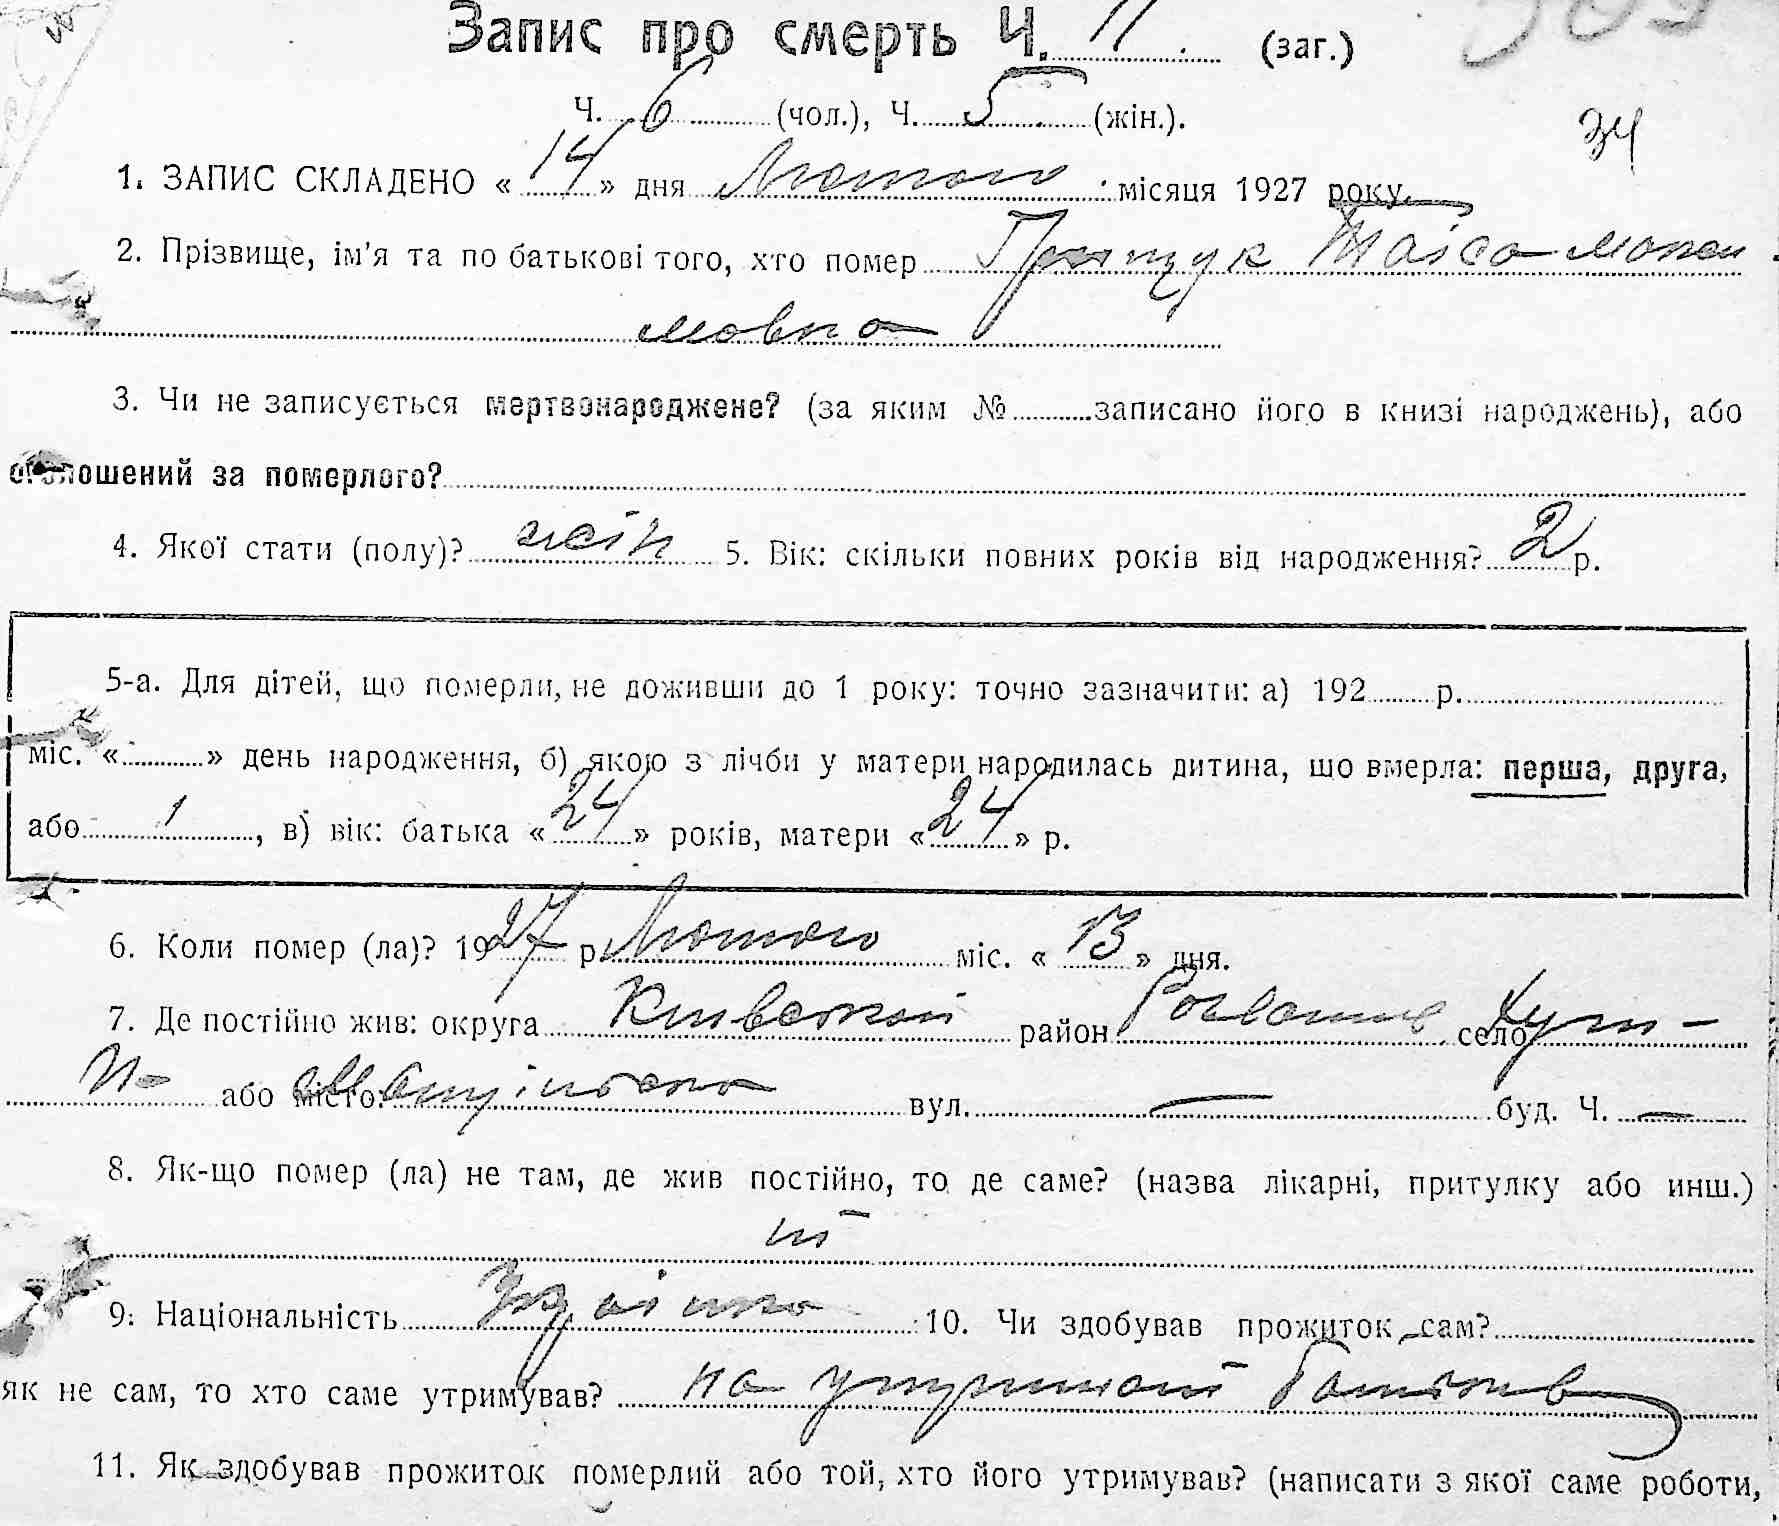 Запис про смерть Ч. 11 (заг.)
Ч. 6 (чол.), Ч. 5 (жін.).
34
1. ЗАПИС СКЛАДЕНО «14» дня Лютого місяця 1927 року.
2. Прізвище, ім'я та по батькові того, хто помер Грищук Таіса
мовна
3. Чи не записується мертвонароджене? (за яким № записано його в книзі народжень), або
оголошений за померлого?
4. Якої стати (полу)? жін 5. Вік: скільки повних років від народження? 2 р.
5-а. Для дітей, що померли, не доживши до 1 року: точно зазначити: а) 192 р.
міс. « » день народження, б) якою з лічби у матери народилась дитина, що вмерла: перша, друга,
або 1, в) вік: батька «24» років, матери «24» р.
6. Коли помер (ла)? 1927 р. Лютого міс. «13» дня.
7. Де постійно жив: округа район село Хут-
або місто вул. — буд. Ч. —
8. Як-що помер (ла) не там, де жив постійно, то де саме? (назва лікарні, притулку або инш.)
9. Національність Украінка 10. Чи здобував прожиток сам?
як не сам, то хто саме утримував? на утримані батьків
11. Як здобував прожиток померлий або той, хто його утримував? (написати з якої саме роботи,